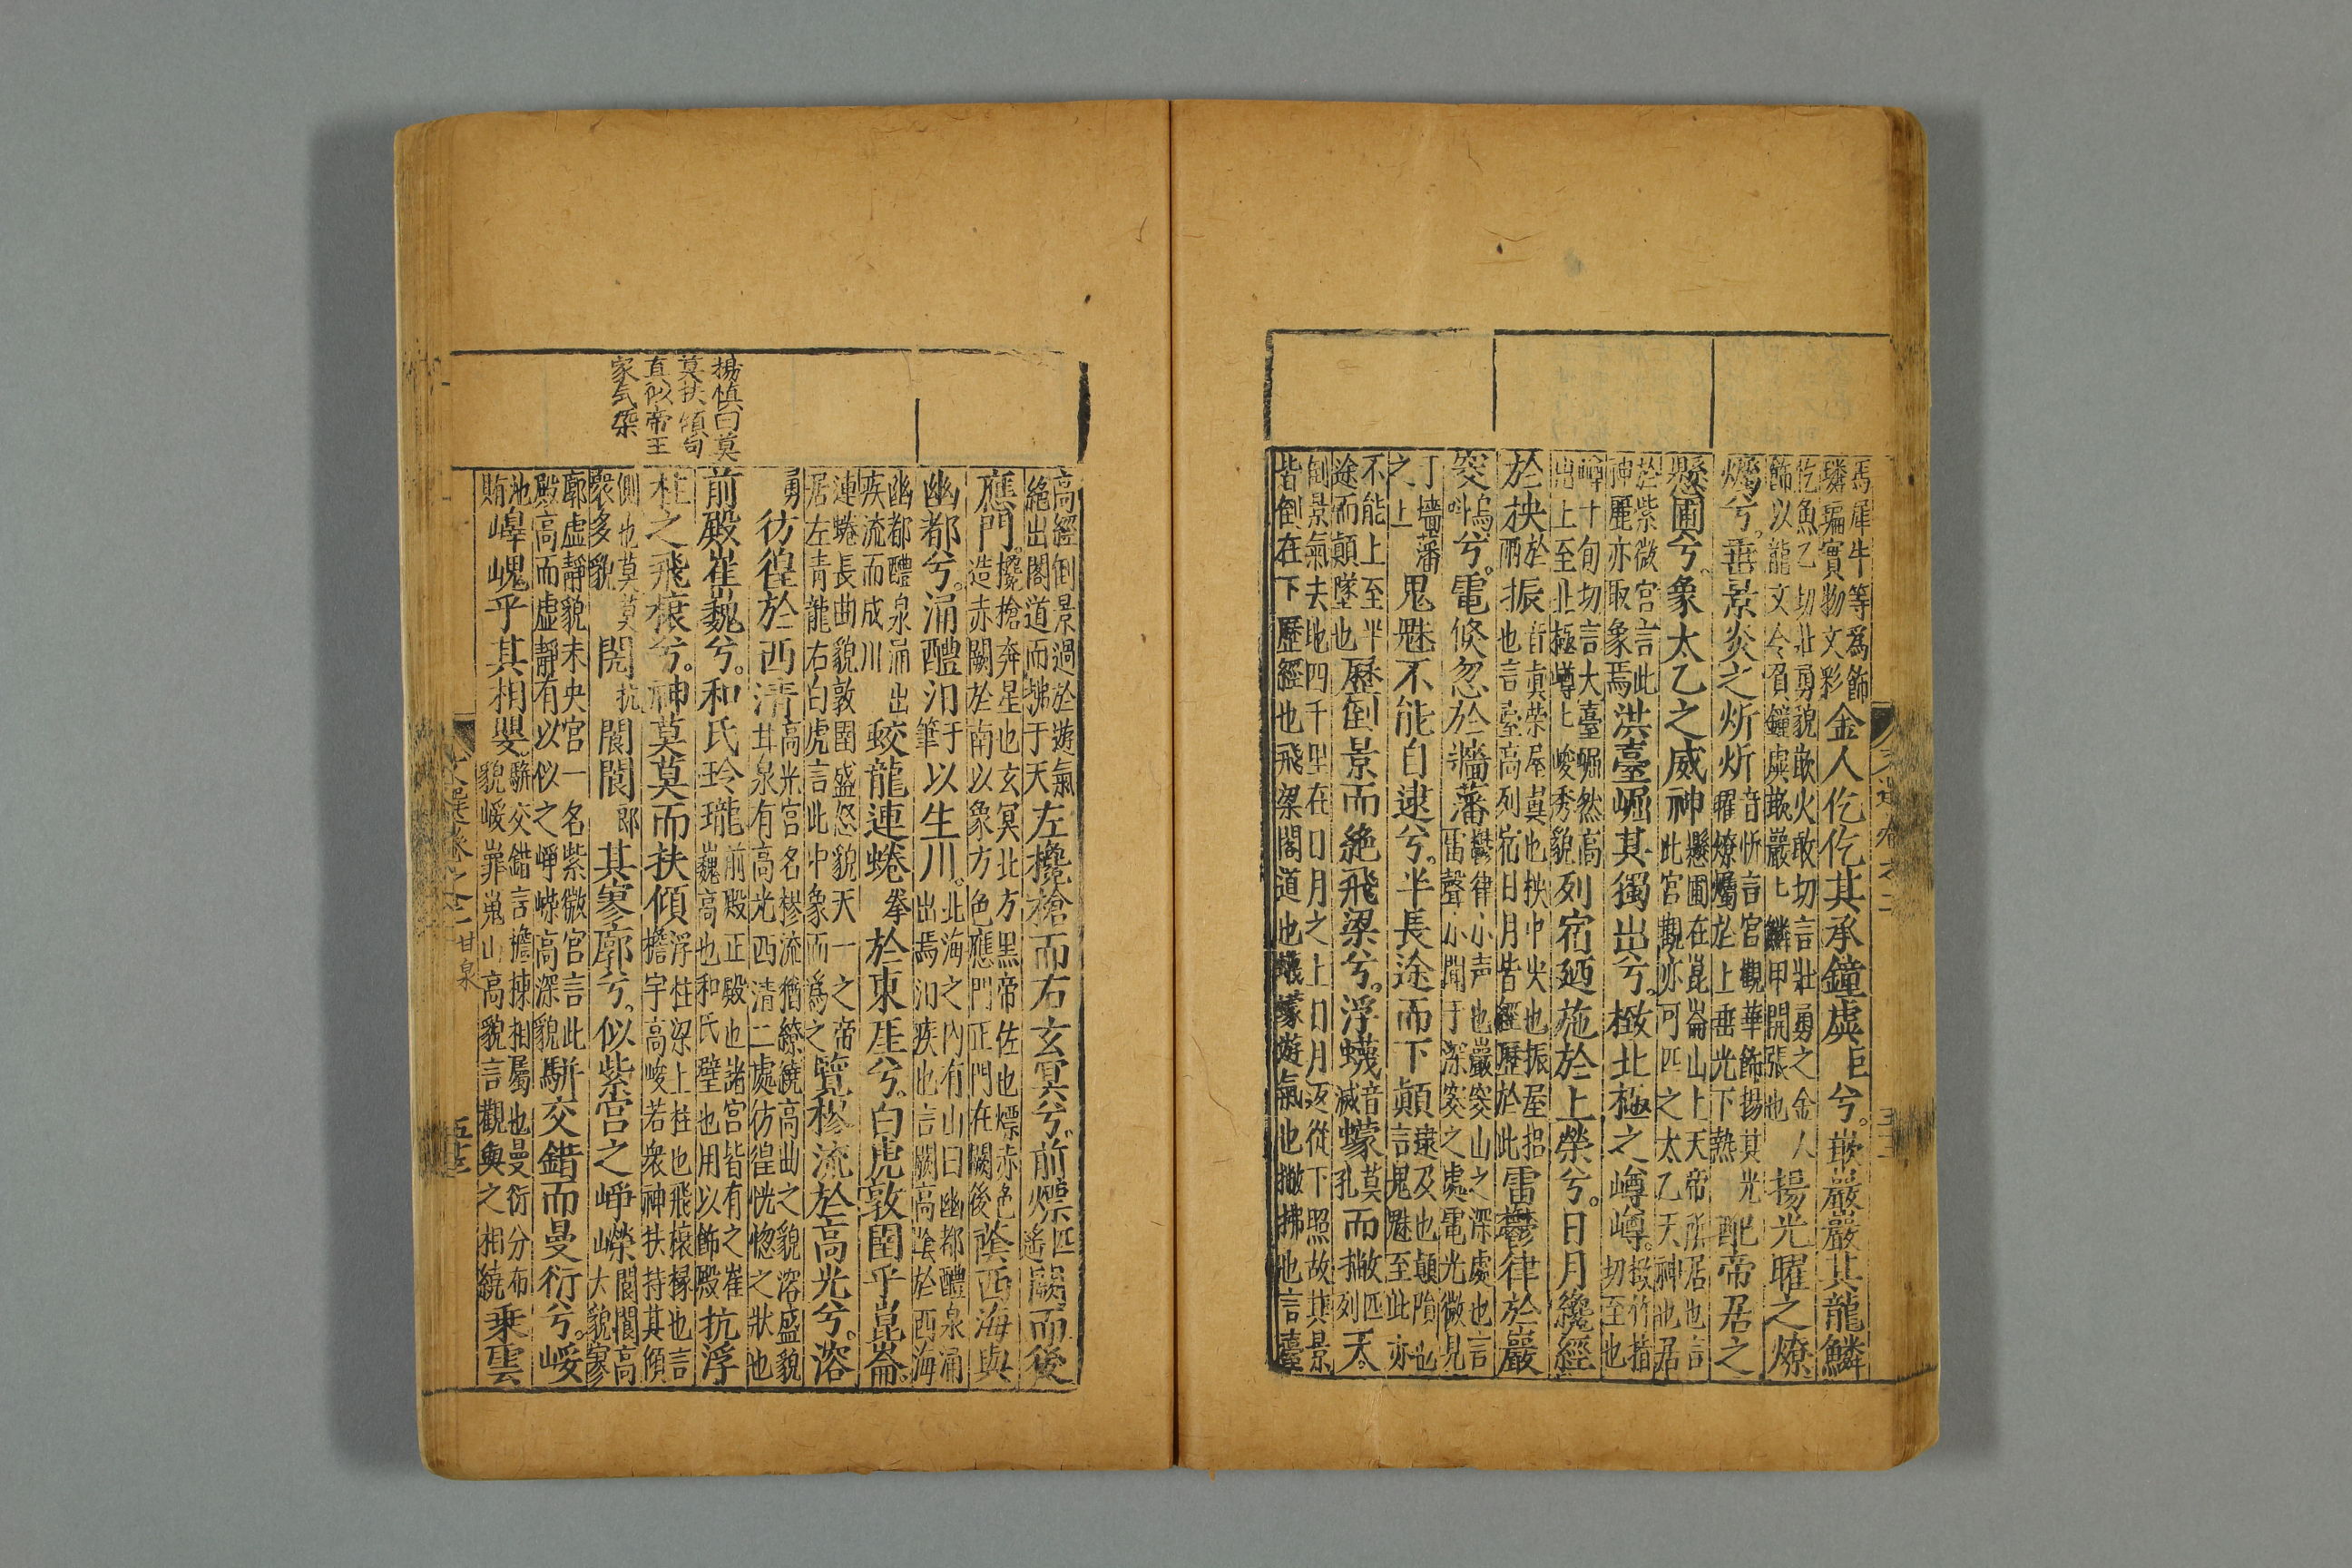 馬犀牛等爲飾
璘㻞實物文彩
金人仡仡其承鐘虡巨兮。嵌巖巖其龍鱗
仡魚乙切壯勇貌嵌火敢切言壯勇之金人
飾以龍文令負鐘虡嵌巖上鱗甲開張也
揚光曜之燎
燭兮。垂景炎之炘炘
音忻言宮觀華飾揚其光
曜燎燭於上垂光下熱
配帝居之
懸圃兮。象太乙之威神
懸圃在崑崙山上天帝所居也言
此宮觀亦可匹之太乙天神也居
於紫微宮言此
神麗亦取象焉
洪臺崛其獨出兮。㨖北極之嶟嶟。
㨖竹指
切至也
嶟十旬切言大臺崛然高
出上至北極嶟上峻秀貌
列宿廼施於上榮兮。日月纔經
於柍於兩振
音真榮屋翼也柍中央也振屋梠
也言臺高列宿日月皆經歷於此
雷鬱律於巖
窔嗚叫兮。電倏忽於牆藩
鬱律小声也巖窔山之深處也言
雷聲小聞于深窔之處電光微見
丁墻藩
之上
鬼魅不能自逮兮。半長途而下顛
逮及也顛隕也
言鬼魅至此亦
不能上至半
途而顛墜也
歷倒景而絶飛梁兮。浮蠛音滅蠓莫孔而撇匹列天。
倒景氣去地四千里在日月之上日月返從下照故其景
皆倒在下歷經也飛梁閣道也蠛蠓遊氣也撇拂也言臺
高經倒景過於遊氣
絶出閣道而拂于天
左欃槍而右玄冥兮。前熛匹遙闕而後
應門。
欃槍奔星也玄冥北方黑帝佐也熛赤色
造赤闕於南以象方色應門正門在闕後
蔭西海與
幽都兮。涌醴汩于筆以生川。
北海之內有山曰幽都醴泉涌
出焉汩疾也言闕高蔭於西海
幽都醴泉涌出
疾流而成川
蛟龍連蜷拳於東厓兮。白虎敦圉乎崑崙。
連蜷長曲貌敦圉盛怒貌天一之帝
居左青龍右白虎言此中象而爲之
覽樛流於高光兮。溶
勇彷徨於西清
高光宮名樛流猶繚繞高曲之貌溶盛貌
甘泉有高光西清二處彷徨恍惚之狀也
前殿崔巍兮。和氏玲瓏
前殿正殿也諸宮皆有之崔
巍高也和氏璧也用以飾殿
抗浮
柱之飛榱兮。神莫莫而扶傾
浮柱梁上柱也飛榱椽也言
檐宇高峻若衆神扶持其傾
側也莫莫
衆多貌
閌抗閬閬郎其寥廓兮。似紫宮之崢嶸
閬閬高
大貌寥
廓虛靜貌未央宮一名紫微宮言此
殿高而虛靜有以似之崢嶸高深貌
駢交錯而曼衍兮。㟎
池賄嶵嵬乎其相嬰
駢交錯言擔棟相屬也曼衍分布
貌㟎嶵嵬山高貌言觀輿之相繞
乗雲
楊慎曰莫
莫扶傾句
直似帝王
家气槩
文選卷之二 甘泉